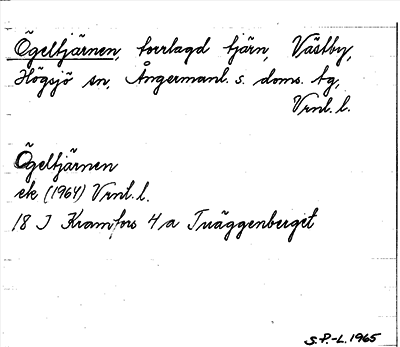 Ögeltjärnen, torrlagd tjärn, Västby,
Högsjö sn, Ångermanl. s. doms. tg,
Vrnl. l.
Ögeltjärnen
ek (1964) Vrnl. l.
18 J Kramfors 4 a Träggenberget
S.P.-L. 1965